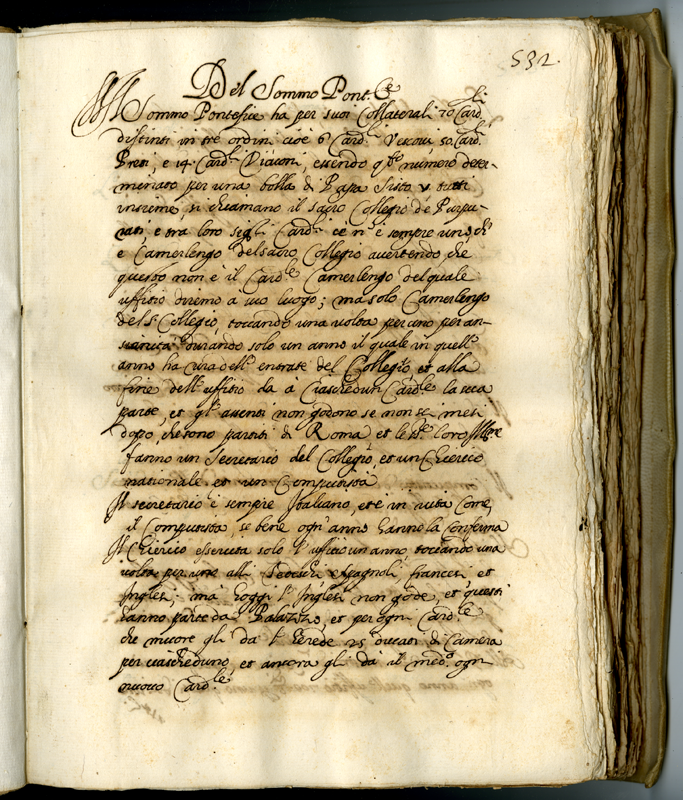 532.
Del Sommo Pont.ce
Il Sommo Pontefice ha per suoi Collaterali 70 Card.li
distinti in tre ordini cioè 6 Card.li Vescovi 50. Card.li
Preti, e 14. Card.li Diaconi, essendo q.to numero deter-
minato per una bolla di Papa Sisto V tutti
insieme si chiamano il sacro Collegio de Purpu-
rati, e tra loro segli Card.li ce n'è sempre uno, ch'
è Camerlengo del sacro Collegio avertendo che
questo non è il Card.le Camerlengo del quale
uffitio diremo a suo luogo; ma solo Camerlengo
del s.o Collegio, toccando una volta per uno per an-
tianità durando solo un anno il quale in quell'
anno ha cura dell' entrate del Collegio et alla
fine dell' uffitio da à ciaschedun Card.le la sua
parte, et gl' assenti non godono se non sei mesi
dopo, che sono partiti di Roma et le d.e loro Ill.me
fanno un Secretario del Collegio, et un Chierico
nationale et un Computista
Il secretario è sempre Italiano, et è in vita Come
il Computista, se bene ogn' anno hanno la Conferma
Il Chierico essercita solo l' uffitio un anno, toccando una
volta per uno alli Tedeschi spagnoli, francesi et
Inglesi; mà hoggi l' Inglese non gode, et questi
hanno parte da Palazzo, et per ogni Card.le
che muore gli da l' herede 25 ducati di Camera
per ciascheduno, et ancora gli dà il med.o ogn
nuovo Card.le